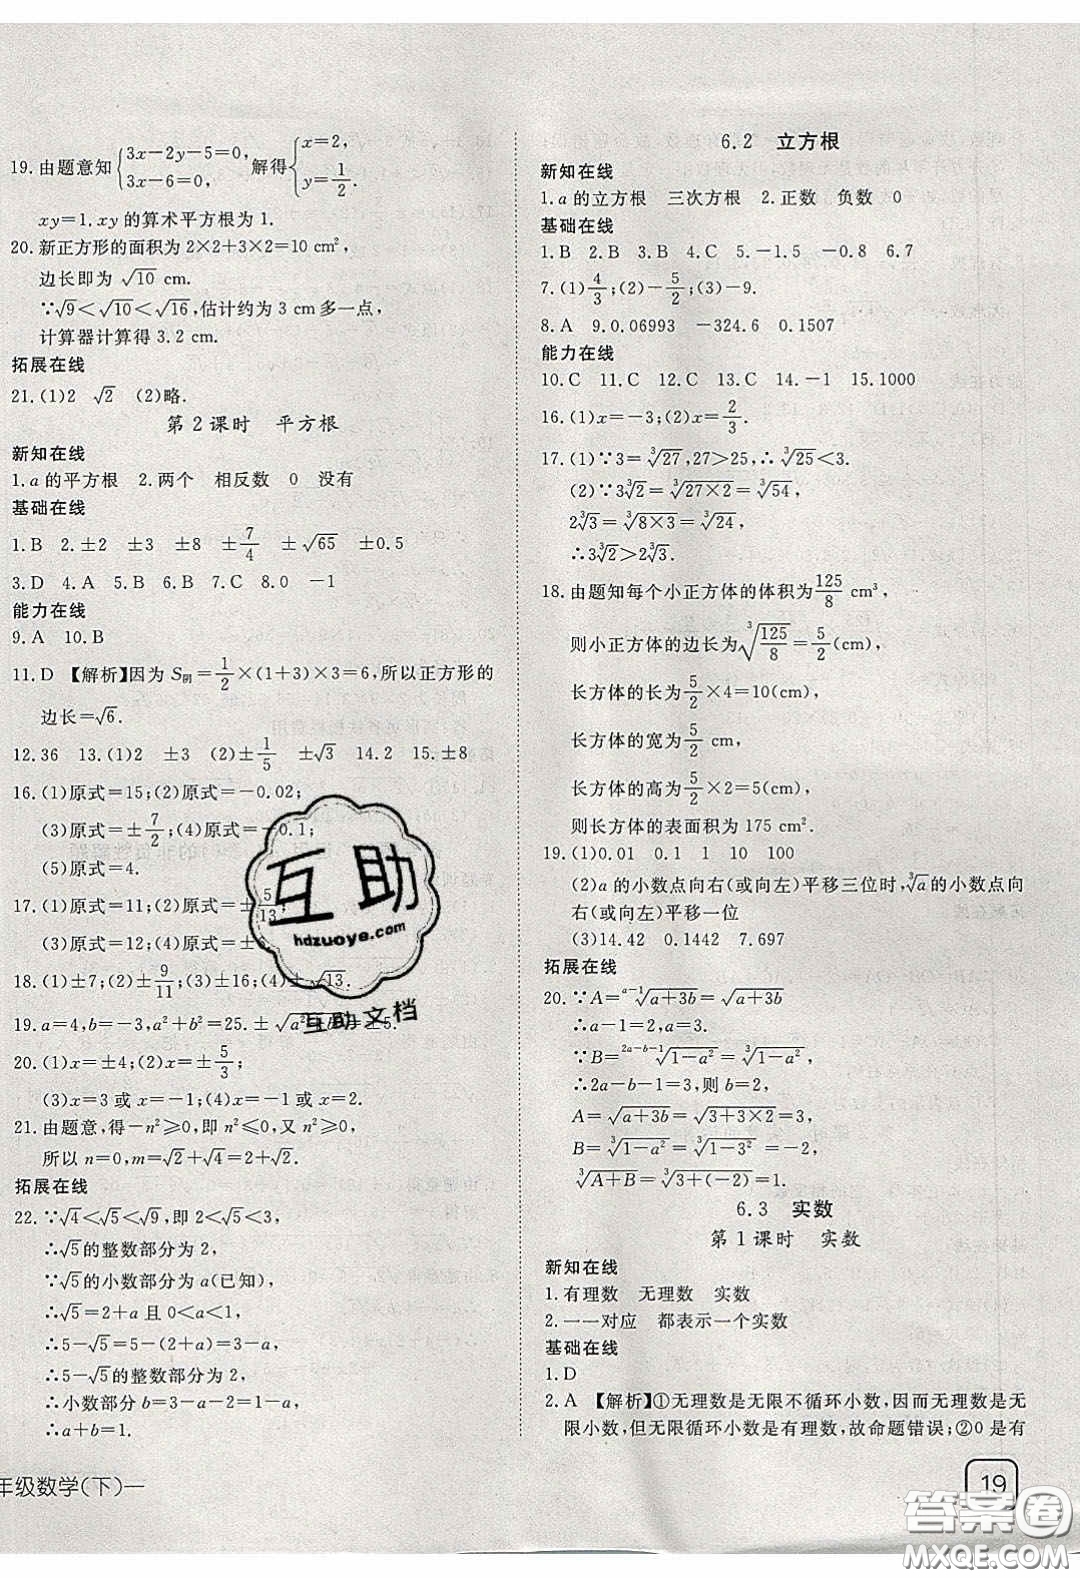 19.由题意知{3x-2y-5=0, 3x-6=0, 解得{x=2, y=1/2.
xy=1.xy的算术平方根为1.
20.新正方形的面积为2×2+3×2=10 cm²,
边长即为 √10 cm.
∵√9<√10<√16,估计约为3 cm多一点,
计算器计算得3.2 cm.
拓展在线
21.(1)2 √2 (2)略.
第2课时 平方根
新知在线
1.a的平方根 2.两个 相反数 0 没有
基础在线
1.B 2.±2 ±3 ±8 ±7/4 ±√65 ±0.5
3.D 4.A 5.A 6.B 7.C 8.0 -1
能力在线
9.A 10.B
11.D 【解析】因为S阴=1/2×(1+3)×3=6,所以正方形的
边长=√6.
12.36 13.(1)2 ±3 (2)±1/5 ±√3 14.2 15.±8
16.(1)原式=15;(2)原式=-0.02;
(3)原式=±7/2;(4)原式=-0.1;
(5)原式=4.
17.(1)原式=11;(2)原式=±5/13;
(3)原式=-0.2;(4)原式=±
18.(1)±7;(2)±9/11;(3)±16;(4)±√13.
19.a=4,b=-3,a²+b²=25.±√a²+b²=±5.
20.(1)x=±4;(2)x=±5/3;
(3)x=3或x=-1;(4)x=1或x=2.
21.由题意,得-n²≥0,即n²≤0,又n²≥0,
所以n=0,m=√2+√4=2+√2.
拓展在线
22.∵√4<√5<√9,即2<√5<3,
∴√5的整数部分为2,
∵√5的小数部分为a(已知),
∴√5=2+a且0<a<1,
∴5-√5=5-(2+a)=3-a,
∴5-√5的整数部分为2,
∴小数部分b=3-a-2=1-a,
∴a+b=1.
年级数学(下)—
6.2 立方根
新知在线
1.a的立方根 三次方根 2.正数 负数 0
基础在线
1.B 2.B 3.C 4.C 5.-1.5 -0.8 6.7
7.(1)4/3;(2)-5/2;(3)-9.
8.A 9.0.06993 -324.6 0.1507
能力在线
10.C 11.C 12.C 13.D 14.-1 15.1000
16.(1)x=-3;(2)x=2/3.
17.(1)∵3=∛27,27>25,∴∛25<3.
(2)∵3∛2=∛27×2=∛54,
2∛3=∛8×3=∛24,
∴3∛2>2∛3.
18.由题知每个小正方体的体积为125/8 cm³,
则小正方体的边长为∛125/8=5/2(cm),
长方体的长为5/2×4=10(cm),
长方体的宽为5/2 cm,
长方体的高为5/2×2=5(cm),
则长方体的表面积为175 cm².
19.(1)0.01 0.1 1 10 100
(2)a的小数点向右(或向左)平移三位时,∛a的小数点向
右(或向左)平移一位
(3)14.42 0.1442 7.697
拓展在线
20.∵A=ᵃ⁻¹√a+3b=√a+3b,
∴a-1=2,a=3.
∵B=²ᵃ⁻ᵇ⁻¹√1-a²=∛1-a²,
∴2a-b-1=3,则b=2.
A=√a+3b=√3+3×2=3,
B=∛1-a²=∛1-3²=-2,
∛A+B=∛3+(-2)=1.
6.3 实数
第1课时 实数
新知在线
1.有理数 无理数 实数
2.一一对应 都表示一个实数
基础在线
1.D
2.A 【解析】①无理数是无限不循环小数,因而无理数是无
限小数,但无限循环小数是有理数,故命题错误;②0是有
19
互助
hdzuoye.com
互助文档
答案圈
MXQE.COM